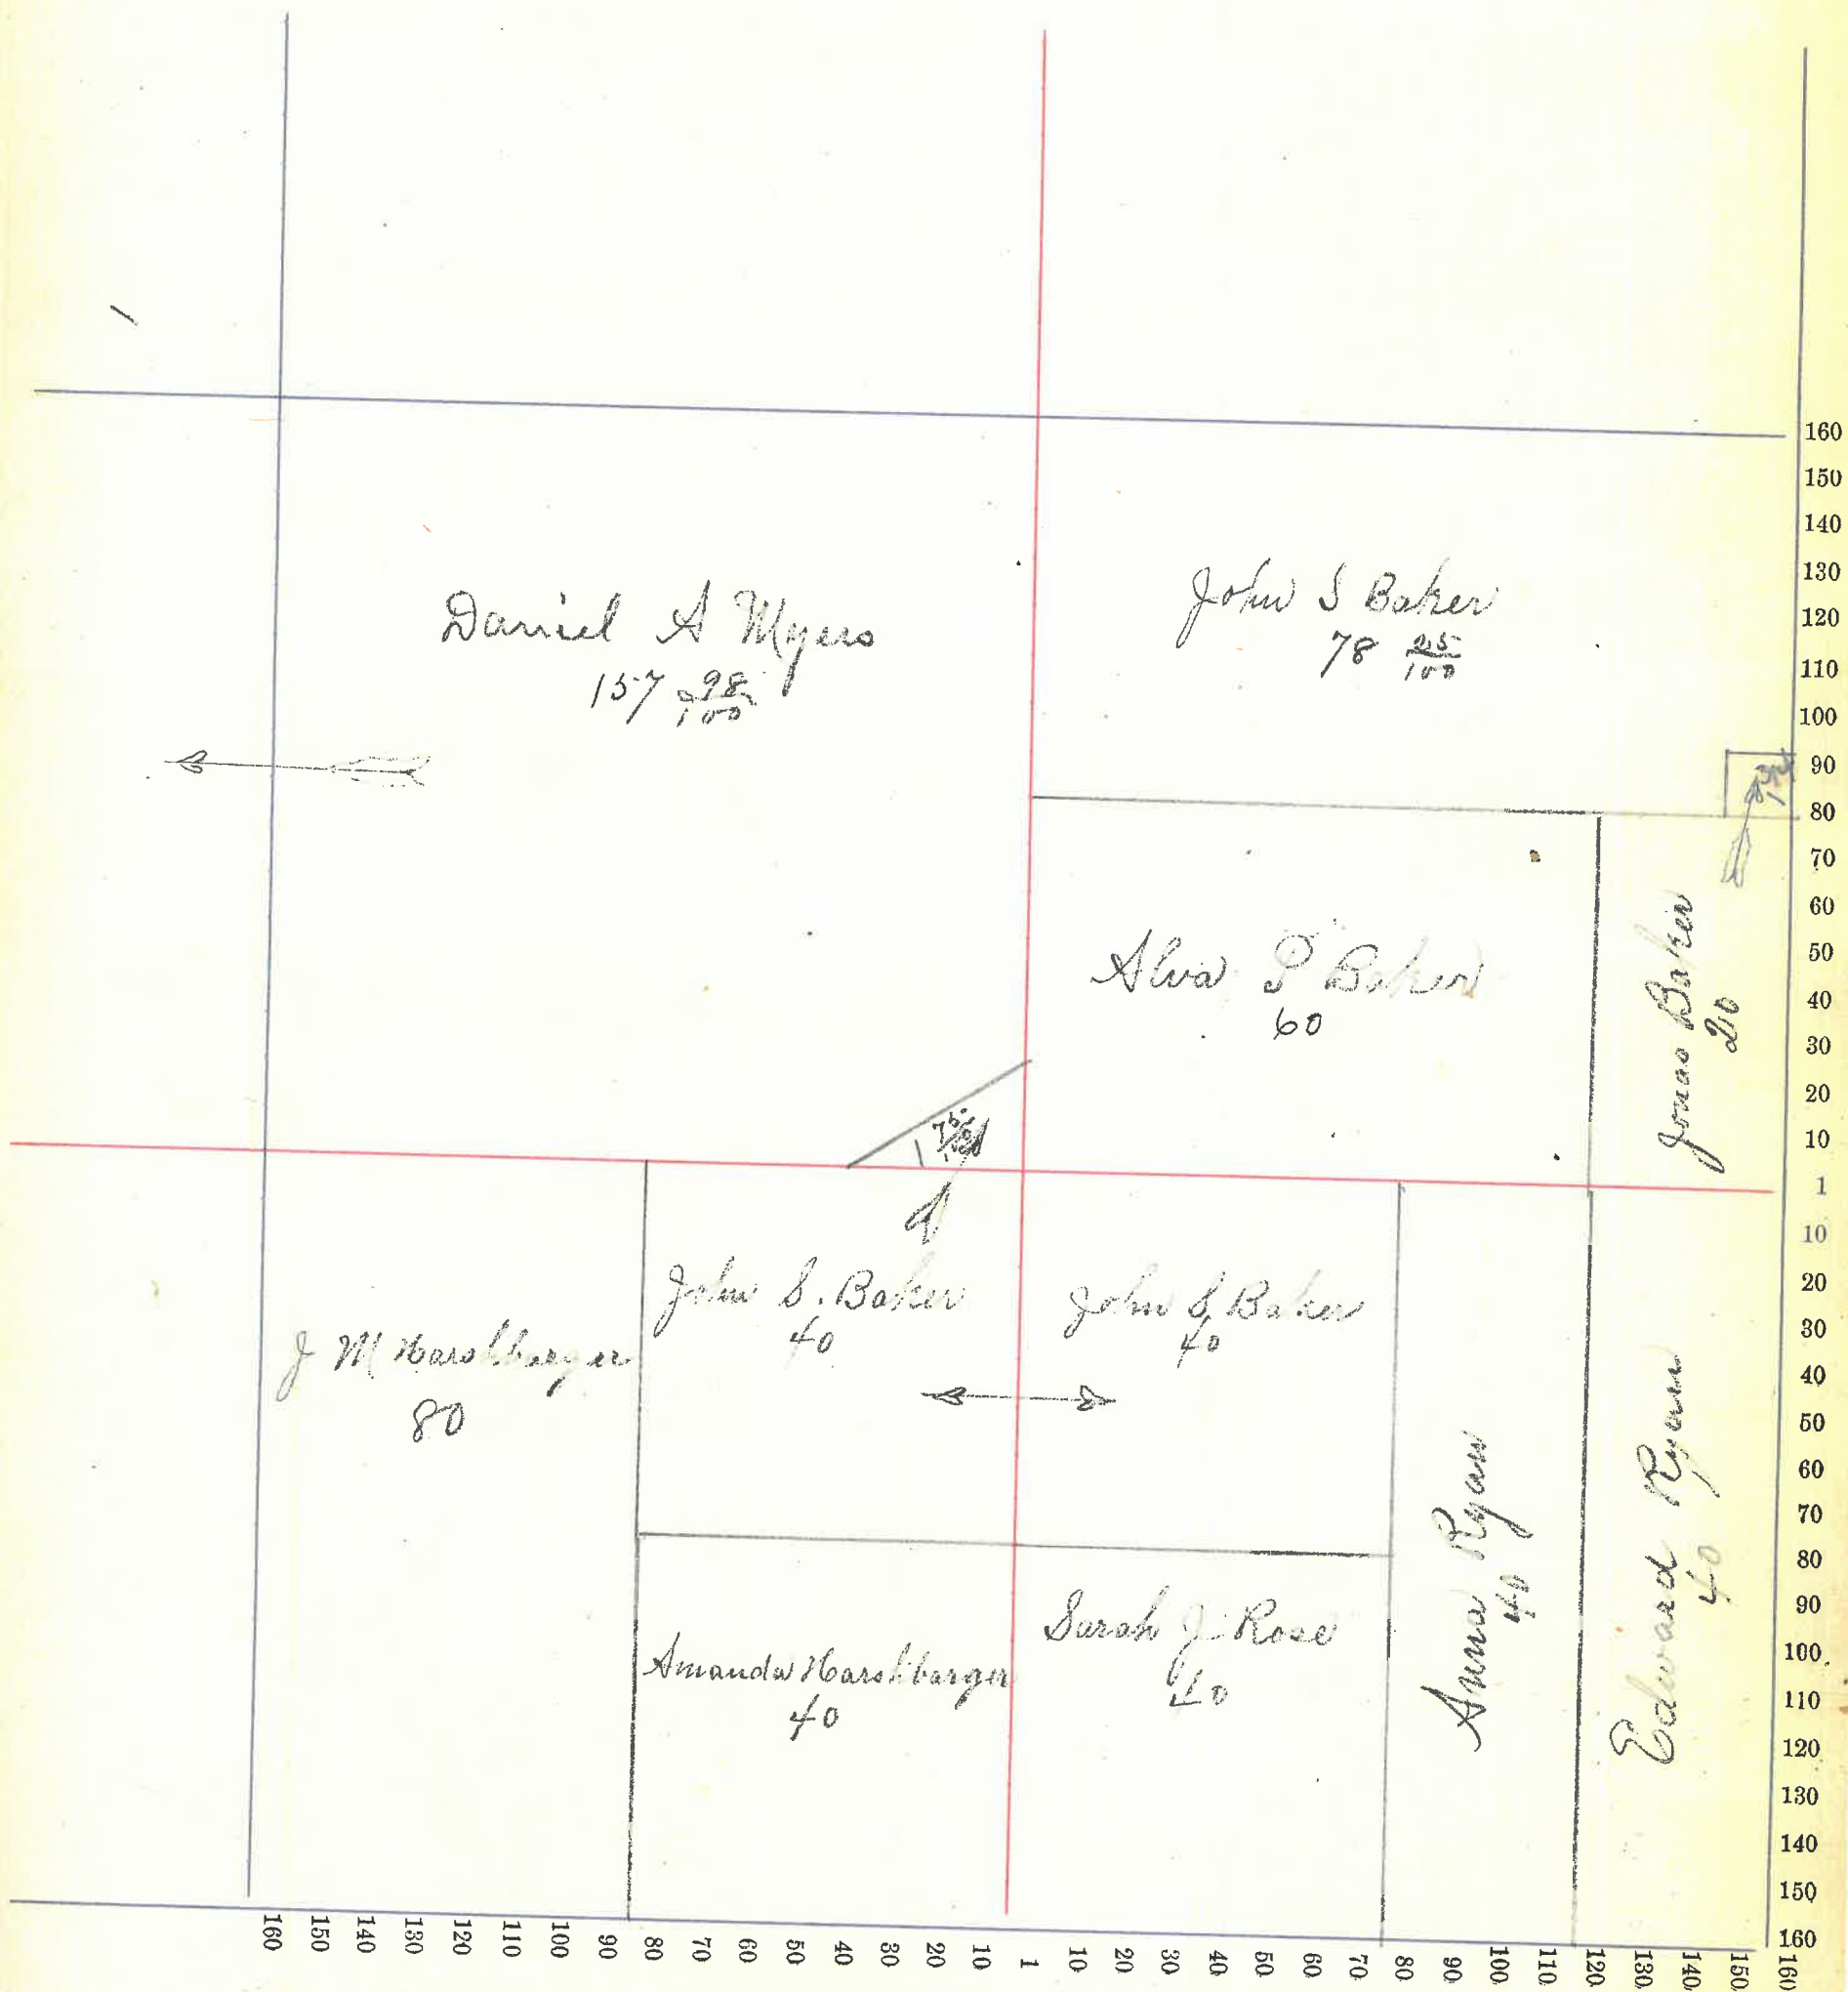 Daniel A Myers
157 98/100
John S Baker
78 25/100
Alva P Baker
60
Jonas Baker
20
1 75/100
J M Harshbarger
80
John S. Baker
40
John S Baker
40
Amanda Harshbarger
40
Sarah J Rose
40
Anna Ryan
40
Edward Ryan
40
160
150
140
130
120
110
100
90
80
70
60
50
40
30
20
10
1
10
20
30
40
50
60
70
80
90
100
110
120
130
140
150
160
160 150 140 130 120 110 100 90 80 70 60 50 40 30 20 10 1 10 20 30 40 50 60 70 80 90 100 110 120 130 140 150 160